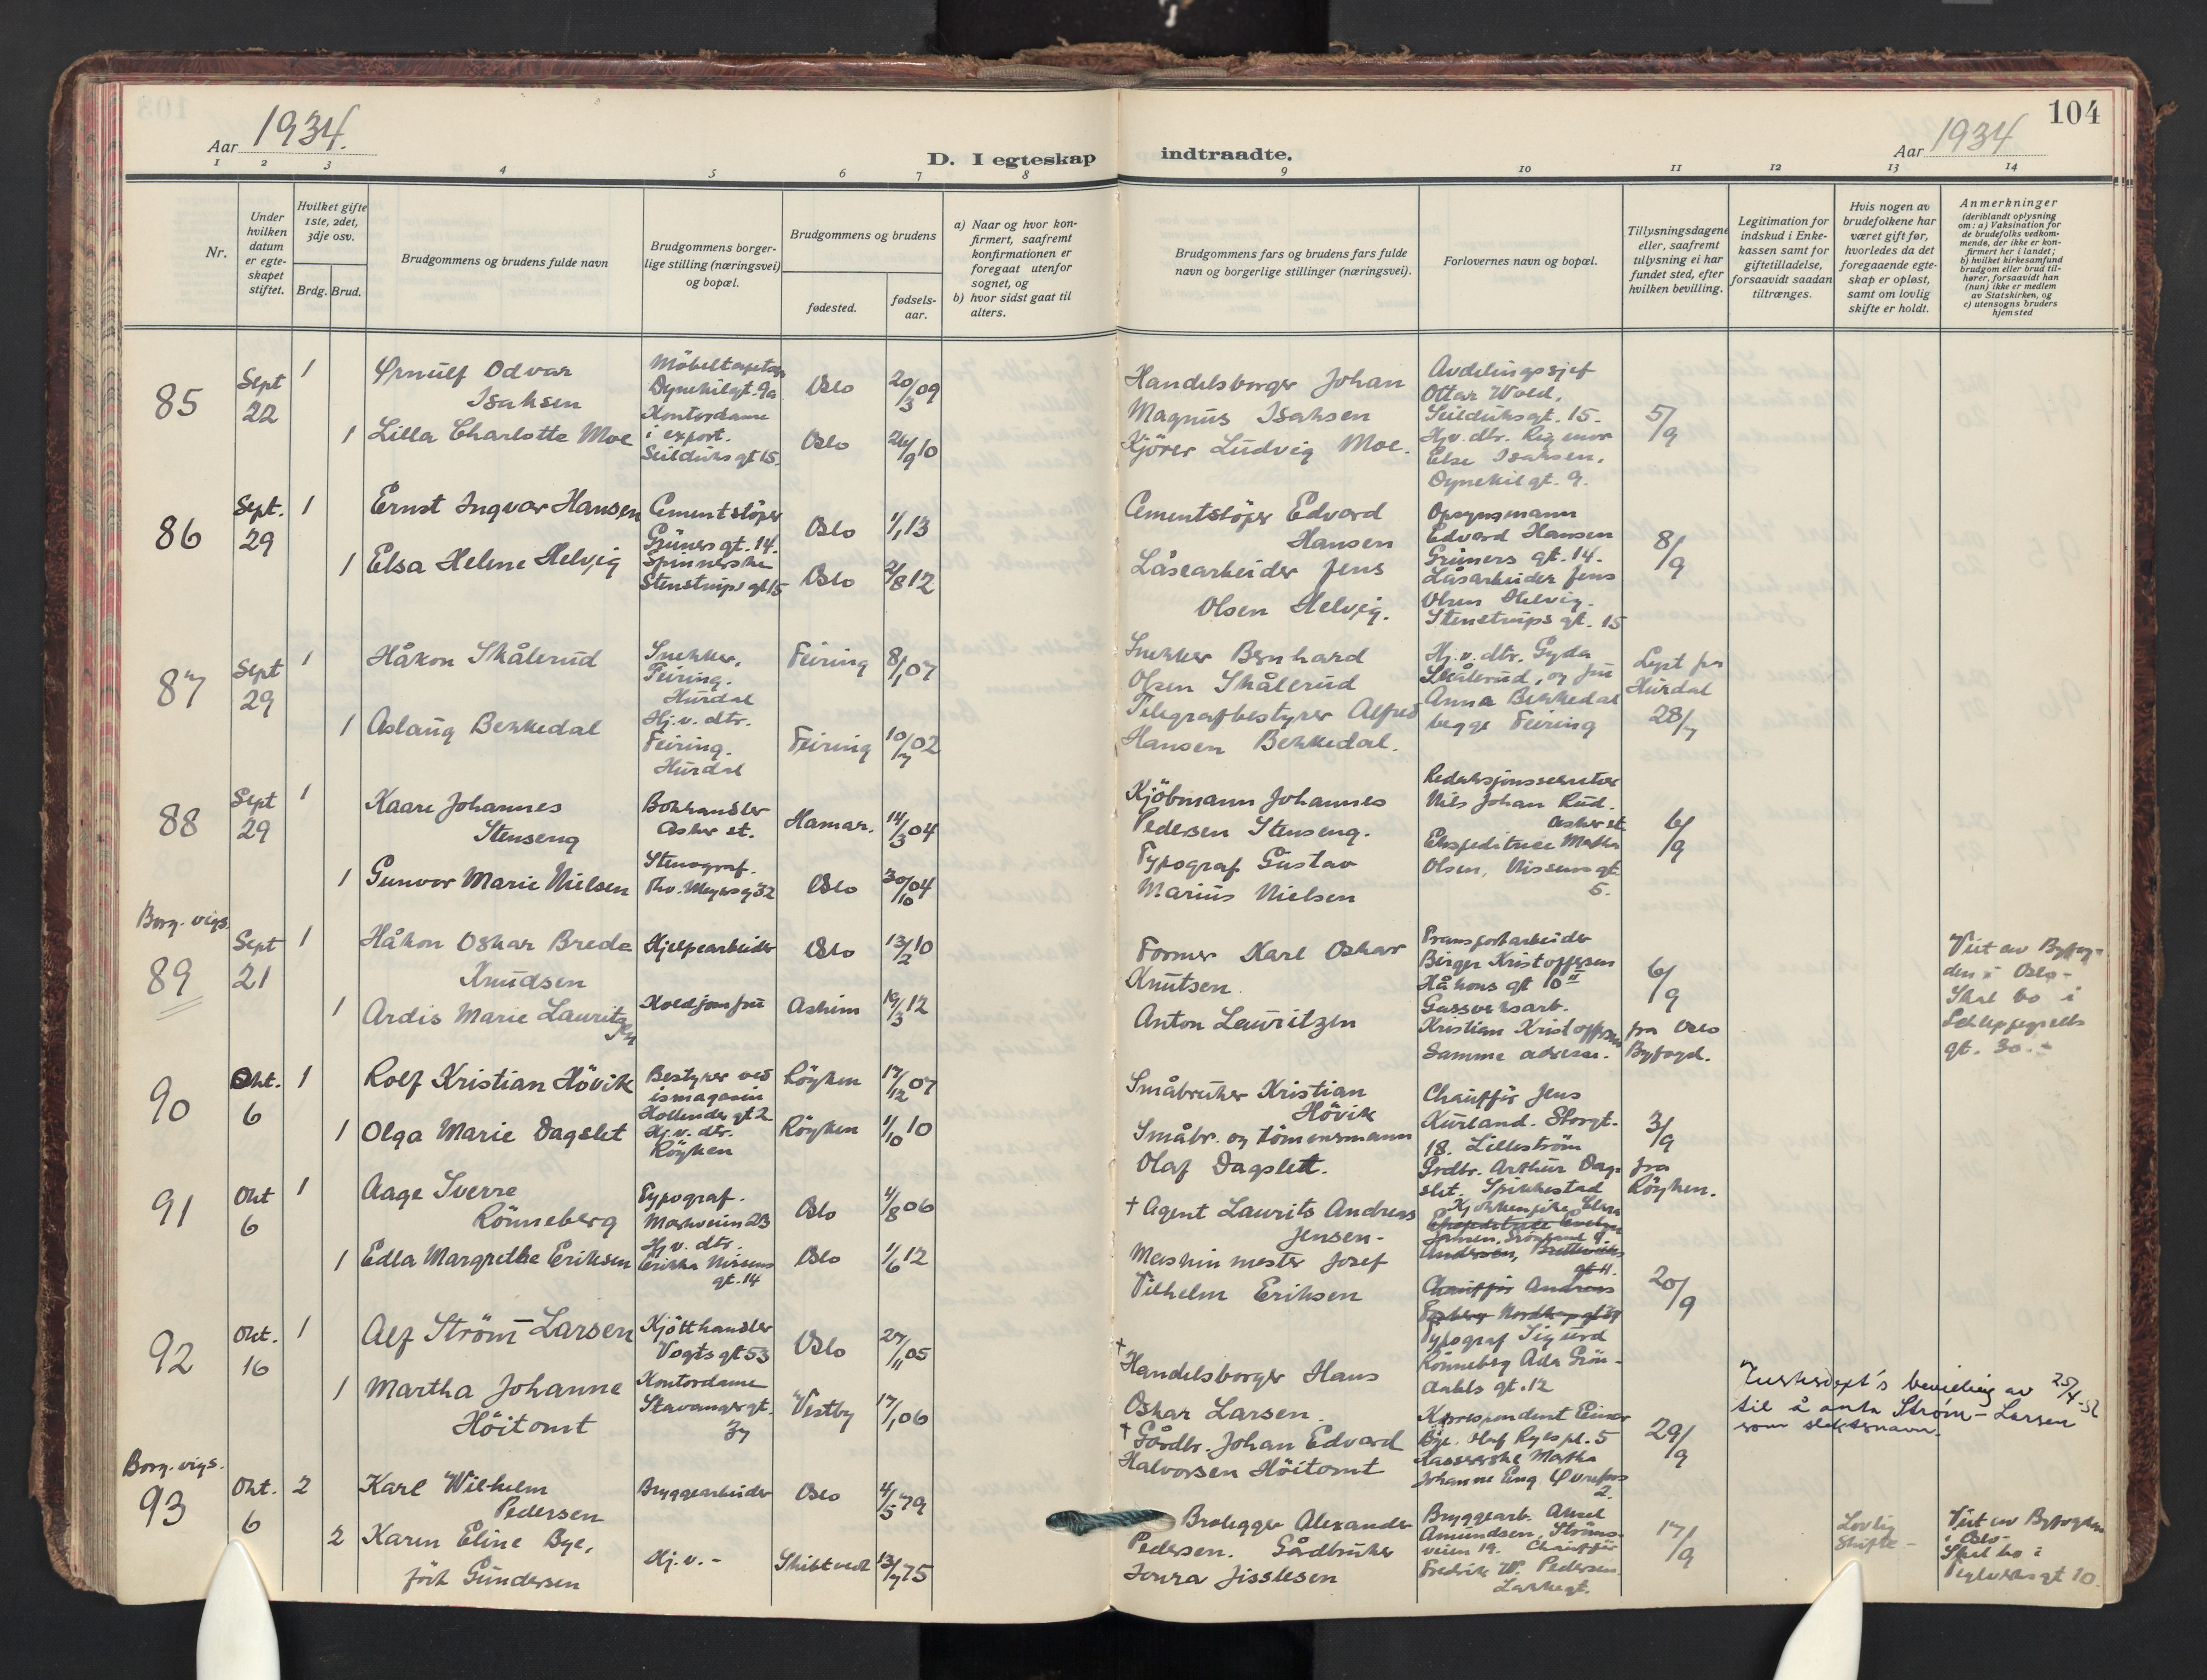 104
Aar 1934.
D. I egteskap indtraadte.
Aar 1934
1 2 3 4 5 6 7 8 9 10 11 12 13 14
Nr.
Under hvilken datum er egte-skapet stiftet.
Hvilket gifte 1ste, 2det, 3dje osv.
Brdg. Brud.
Brudgommens og brudens fulde navn
Brudgommens borger-lige stilling (næringsvei) og bopæl.
Brudgommens og brudens
fødested.
fødsels-aar.
a) Naar og hvor kon-firmert, saafremt konfirmationen er foregaat utenfor sognet, og
b) hvor sidst gaat til alters.
Brudgommens fars og brudens fars fulde navn og borgerlige stillinger (næringsvei).
Forlovernes navn og bopæl.
Tillysningsdagene eller, saafremt tillysning ei har fundet sted, efter hvilken bevilling.
Legitimation for indskud i Enke-kassen samt for giftetilladelse, forsaavidt saadan tiltrænges.
Hvis nogen av brudefolkene har været gift før, hvorledes da det foregaaende egte-skap er opløst, samt om lovlig skifte er holdt.
Anmerkninger
(deriblandt oplysning om: a) Vaksination for de brudefolks vedkom-mende, der ikke er kon-firmert her i landet; b) hvilket kirkesamfund brudgom eller brud til-hører, forsaavidt han (hun) ikke er medlem av Statskirken, og c) utensogns bruders hjemsted
85
Sept 22
1
Ørnulf Odvar Isaksen
Dynekilgt. 9a
Oslo
20/3 09
Handelsborger Johan Magnus Isaksen
Avdelingssjef Ottar Wold, Seilduksgt. 15.
Hj.v. dtr. Rigmor Else Isaksen, Dynekilgt. 9.
5/9
1
Lilla Charlotte Moe
Kontordame i export. Seilduksgt 15.
Oslo
26/9 10
Kjörer Ludvig Moe.
86
Sept. 29
1
Ernst Ingvar Hansen
Cementstöper Grüners gt. 14.
Oslo
1/1 13
Cementstöper Edvard Hansen
Opsynsmann Edvard Hansen Grüners gt. 14.
Låsarbeider Jens Olsen Helvig. Stenstrups gt. 15
8/9
1
Elsa Helene Helvig
Spinnerske Stenstrups gt 15
Oslo
2/8 12
Låsearbeider Jens Olsen Helvig.
87
Sept 29
1
Håkon Skålerud
Snekker, Feiring. Hurdal
Feiring
8/1 07
Snekker Bernhard Olsen Skålerud
Hj.v. dtr. Gyda Skålerud, og fru Anna Bekkedal begge Feiring
Lyst fra Hurdal 28/7
1
Aslaug Bekkedal
Hj.v. dtr. Feiring. Hurdal
Feiring
10/7 02
Telegrafbestyrer Alfred Hansen Bekkedal.
88
Sept 29
1
Kaare Johannes Stenseng
Bokhandler Asker st.
Hamar.
14/3 04
Kjöbmann Johannes Pedersen Stenseng.
Redaksjonssekretær Nils Johan Rud. Asker st
Ekspeditrise Martha Olsen, Nissens gt 5.
6/9
1
Gunvor Marie Nielsen
Stenograf. Thv. Meyers g 32
Oslo
30/10 04
Typograf Gustav Marius Nielsen
Borg. vigs.
89
Sept 21
1
Håkon Oskar Brede Knudsen
Hjelpearbeider
Oslo
13/2 10
Former Karl Oskar Knutsen.
Transportarbeider Birger Kristoffersen Håkons gt 10 II
Gassverksarb. Kristian Kristoffersen Samme adresse.
6/9 fra Oslo Byfogd.
Viet av Byfog-den i Oslo - Skal bo i Schleppegrells gt. 30. -
1
Ardis Marie Lauritzen
Koldjomfru
Askim
19/3 12
Anton Lauritzen
90
Okt. 6
1
Rolf Kristian Hövik
Bestyrer ved ismagasin Hollendergt 2
Röyken
17/12 07
Småbruker Kristian Hövik
Chaufför Jens Kurland. Storgt. 18. Lilleström
Grdbr. Arthur Dag-slet. Spikkestad
3/9 fra Röyken.
1
Olga Marie Dagslet
Hj.v. dtr. Röyken
Röyken
1/10 10
Småbr. og tömmermann Olaf Dagslett.
91
Okt 6
1
Aage Sverre Rönneberg
Typograf. Markveien 23
Oslo
4/8 06
+ Agent Laurits Andreas Jensen -
Andersen,
gt 11.
Chauffør Andreas
Typograf Sigurd Rönneberg Ada Grön-dahls gt. 12
20/9
1
Edla Margrethe Eriksen
Hj v. dtr. Erika Nissens gt. 14
Oslo
1/6 12
Maskinmester Josef Vilhelm Eriksen
92
Okt. 16
1
Alf Ström-Larsen
Kjötthandler Vogts gt 53
Oslo
27/11 05
+ Handelsborger Hans Oskar Larsen.
Korrespondent Einar Bye. Olaf Ryes pl. 5
Kassererske Martha Johanne Eng
29/9
Justisdept's bevilling av 25/4-52 til å anta Strøm-Larsen som slektsnavn.
1
Martha Johanne Höitomt
Kontordame Stavangergt. 37
Vestby
17/1 06
+ Gårdbr. Johan Edvard Halvorsen Höitomt
Borg. vigs.
93
Okt. 6
2
Karl Wilhelm Pedersen
Bryggearbeider
Oslo
4/5 79
Brolegger Alexander Pedersen.
Bryggearb. Aksel Amundsen, Ströms-veien 19. Chaufför Fredrik W. Pedersen.
17/9
Lovlig skifte -
Viet av Byfogden i Oslo - Skal bo i
2
Karen Eline Bye, förh Gundersen
Hj.v. -
Skibtvedt
13/7 75
Gårdbruker